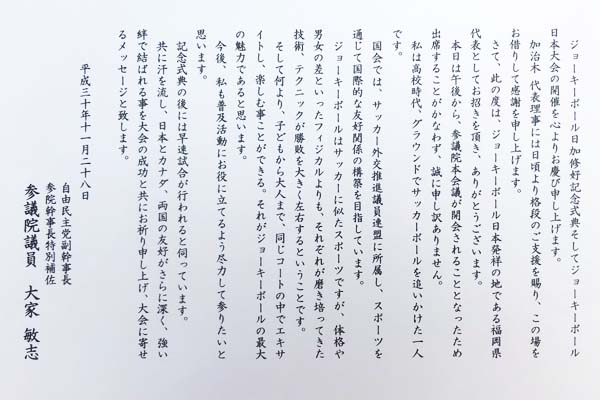 ジョーキーボール日加修好記念式典そしてジョーキーボール
日本大会の開催を心よりお慶び申し上げます。
加治木 代表理事には日頃より格段のご支援を賜り、この場を
お借りして感謝を申し上げます。
さて、此の度は、ジョーキーボール日本発祥の地である福岡県
代表としてお招きを頂き、ありがとうございます。
本日は午後から、参議院本会議が開会されることとなったため
出席することがかなわず、誠に申し訳ありません。
私は高校時代、グラウンドでサッカーボールを追いかけた一人
です。
国会では、サッカー外交推進議員連盟に所属し、スポーツを
通じて国際的な友好関係の構築を目指しています。
ジョーキーボールはサッカーに似たスポーツですが、体格や
男女の差といったフィジカルよりも、それぞれが磨き培ってきた
技術、テクニックが勝敗を大きく左右するということです。
そして何より、子どもから大人まで、同じコートの中でエキサ
イトし、楽しむ事ができる。それがジョーキーボールの最大
の魅力であると思います。
今後、私も普及活動にお役に立てるよう尽力して参りたいと
思います。
記念式典の後には早速試合が行われると伺っています。
共に汗を流し、日本とカナダ、両国の友好がさらに深く、強い
絆で結ばれる事を大会の成功と共にお祈り申し上げ、大会に寄せ
るメッセージと致します。
平成三十年十一月二十八日
自由民主党副幹事長
参院幹事長特別補佐
参議院議員 大家 敏志